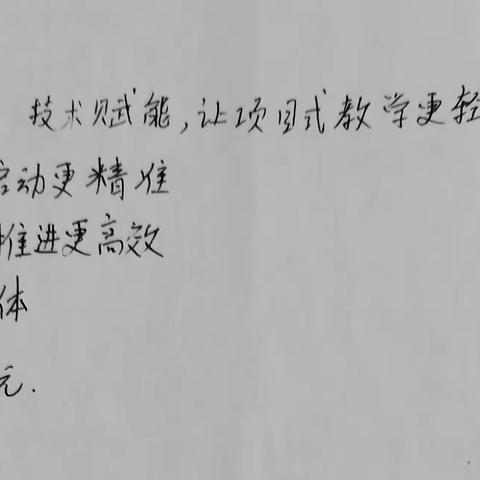 技术赋能,让项目式教学更轻
启动更精准
推进更高效
体
元.